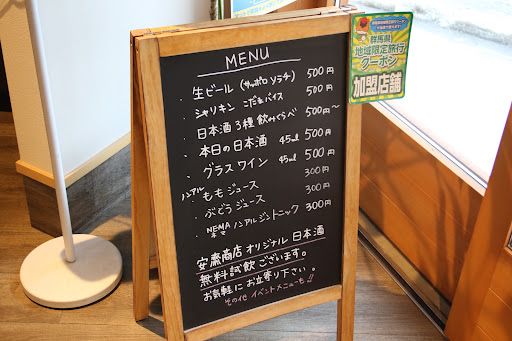 MENU
・生ビール (サッポロ ソラチ) 500円
・シャリキン こだまバイス 500円
・日本酒3種飲みくらべ 500円〜
・本日の日本酒 45ml 500円
・グラスワイン 45ml 500円
ノンアル ももジュース 300円
・ぶどうジュース 300円
・NEMA ノンアルジントニック 300円
安斎商店オリジナル日本酒
無料試飲ございます。
お気軽にお立寄り下さい。
その他 イベントメニューも!!
群馬県
地域限定旅行
クーポン
加盟店舗